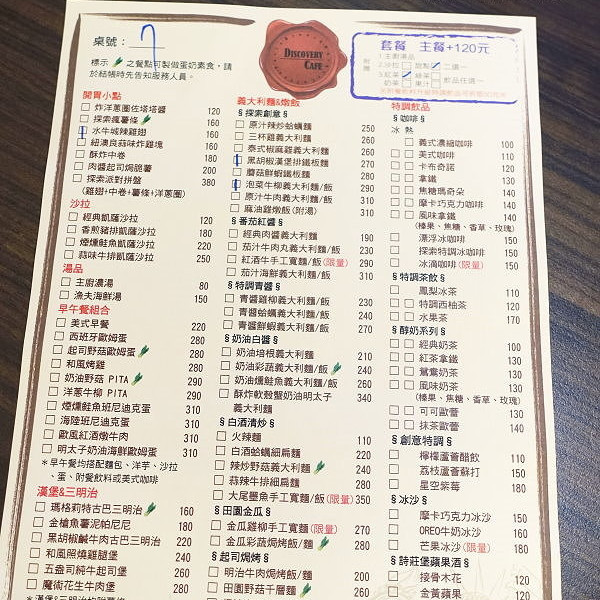 桌號: 7
標示 之餐點可製做蛋奶素食，請
於結帳時先告知服務人員。
DISCOVERY
CAFE
套餐 主餐+120元
開胃小點
炸洋蔥圈佐塔塔醬 120
探索瘋薯條 160
水牛城辣雞翅 160
紐澳良蒜味炸雞塊 160
酥炸中卷 180
肉醬起司焗脆薯 200
探索派對拼盤 380
(雞翅+中卷+薯條+洋蔥圈)
沙拉
經典凱薩沙拉 120
香煎豬排凱薩沙拉 180
煙燻鮭魚凱薩沙拉 220
蒜味牛排凱薩沙拉 250
湯品
主廚濃湯 80
漁夫海鮮湯 150
早午餐組合
美式早餐 220
西班牙歐姆蛋 280
起司野菇歐姆蛋 280
和風烤雞 280
奶油野菇 PITA 290
洋蔥牛柳 PITA 290
煙燻鮭魚班尼迪克蛋 280
海陸班尼迪克蛋 280
歐風紅酒燉牛肉 280
明太子奶油海鮮歐姆蛋 310
＊早午餐均搭配麵包、洋芋、沙拉
、蛋、附餐飲料或美式咖啡
漢堡&三明治
瑪格莉特古巴三明治 160
金槍魚薯泥帕尼尼 180
黑胡椒鹹牛肉古巴三明治 220
和風照燒雞腿堡 240
五盎司純牛起司堡 260
魔術花生牛肉堡 280
義大利麵&燉飯
§ 探索創意 §
原汁辣炒蛤蠣麵 250
三杯雞義大利麵 260
泰式椒麻雞義大利麵 260
黑胡椒漢堡排鐵板麵 280
蘑菇鮮蝦鐵板麵 280
泡菜牛柳義大利麵/飯 290
原汁牛肉義大利麵 310
麻油雞燉飯(附湯) 310
§ 番茄紅醬 §
經典肉醬義大利麵 190
茄汁牛肉丸義大利麵/飯 230
紅酒牛手工寬麵/飯(限量) 290
茄汁海鮮義大利麵/飯 310
§ 特調青醬 §
青醬雞柳義大利麵/飯 230
青醬蛤蠣義大利麵/飯 240
青醬鮮蝦義大利麵/飯 270
§ 奶油白醬 §
奶油培根義大利麵/飯 210
奶油彩蔬義大利麵/飯 240
奶油燻鮭魚義大利麵/飯 260
酥炸軟殼蟹奶油明太子 340
義大利麵
§ 白酒清炒 §
火辣麵 110
白酒蛤蠣細扁麵 220
辣炒野菇義大利麵 240
蒜辣牛排細扁麵 250
大尾墨魚手工寬麵/飯(限量) 350
§ 田園金瓜 §
金瓜雞柳手工寬麵(限量) 270
金瓜彩蔬焗烤飯/麵 280
§ 起司焗烤 §
明治牛肉焗烤飯/麵 200
田園野菇千層麵 260
特調飲品
§ 咖啡 §
冰 熱
義式濃縮咖啡 100
美式咖啡 110
卡布奇諾 120
拿鐵 130
焦糖瑪奇朵 140
摩卡巧克力咖啡 140
風味拿鐵 140
(榛果、焦糖、香草、玫瑰)
漂浮冰咖啡 150
探索特調冰咖啡 150
冰滴咖啡(限量) 150
§ 特調茶飲 §
鳳梨冰茶 110
特調西柚茶 120
水果茶 170
§ 醇奶系列 §
經典奶茶 100
紅茶拿鐵 130
鴛鴦奶茶 130
風味奶茶 130
(榛果、焦糖、香草、玫瑰)
可可歐蕾 130
抹茶歐蕾 140
§ 創意特調 §
檸檬蘆薈醋飲 110
荔枝蘆薈蘇打 150
星空紫莓 180
§ 冰沙 §
摩卡巧克力冰沙 150
OREO牛奶冰沙 160
芒果冰沙(限量) 180
§ 詩莊堡蘋果酒 §
接骨木花 120
金黃蘋果 120